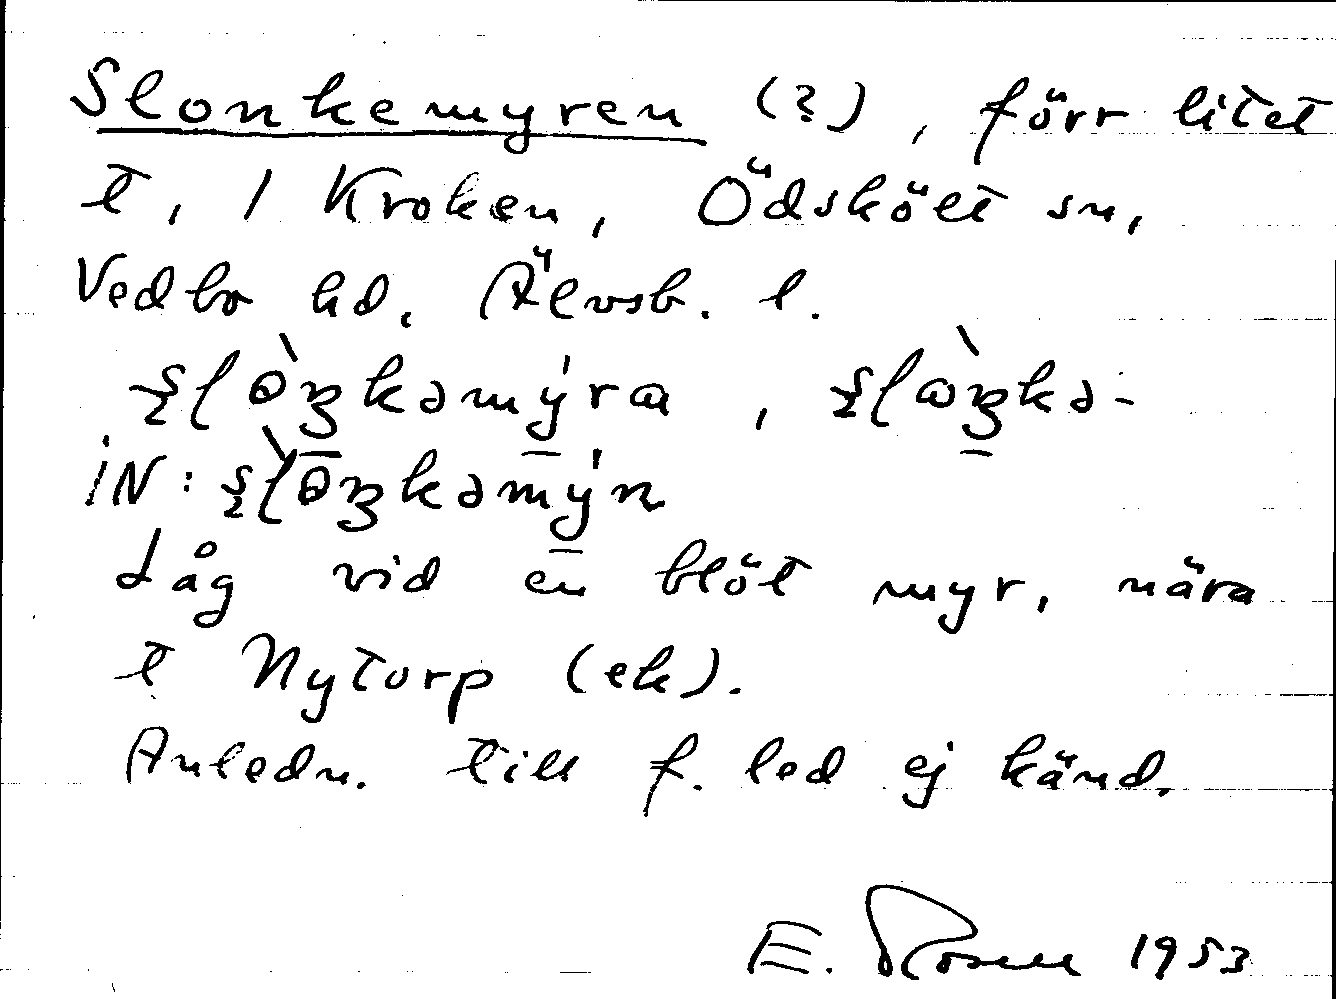 Slonkemyren (?), förr litet
t, / Kroken, Ödskölt sn,
Vedbo hd, Älvsb. l.
iN:
Låg vid en blöt myr, nära
t Nytorp (ek).
Anledn. till f. led ej känd.
E. Rosell 1953